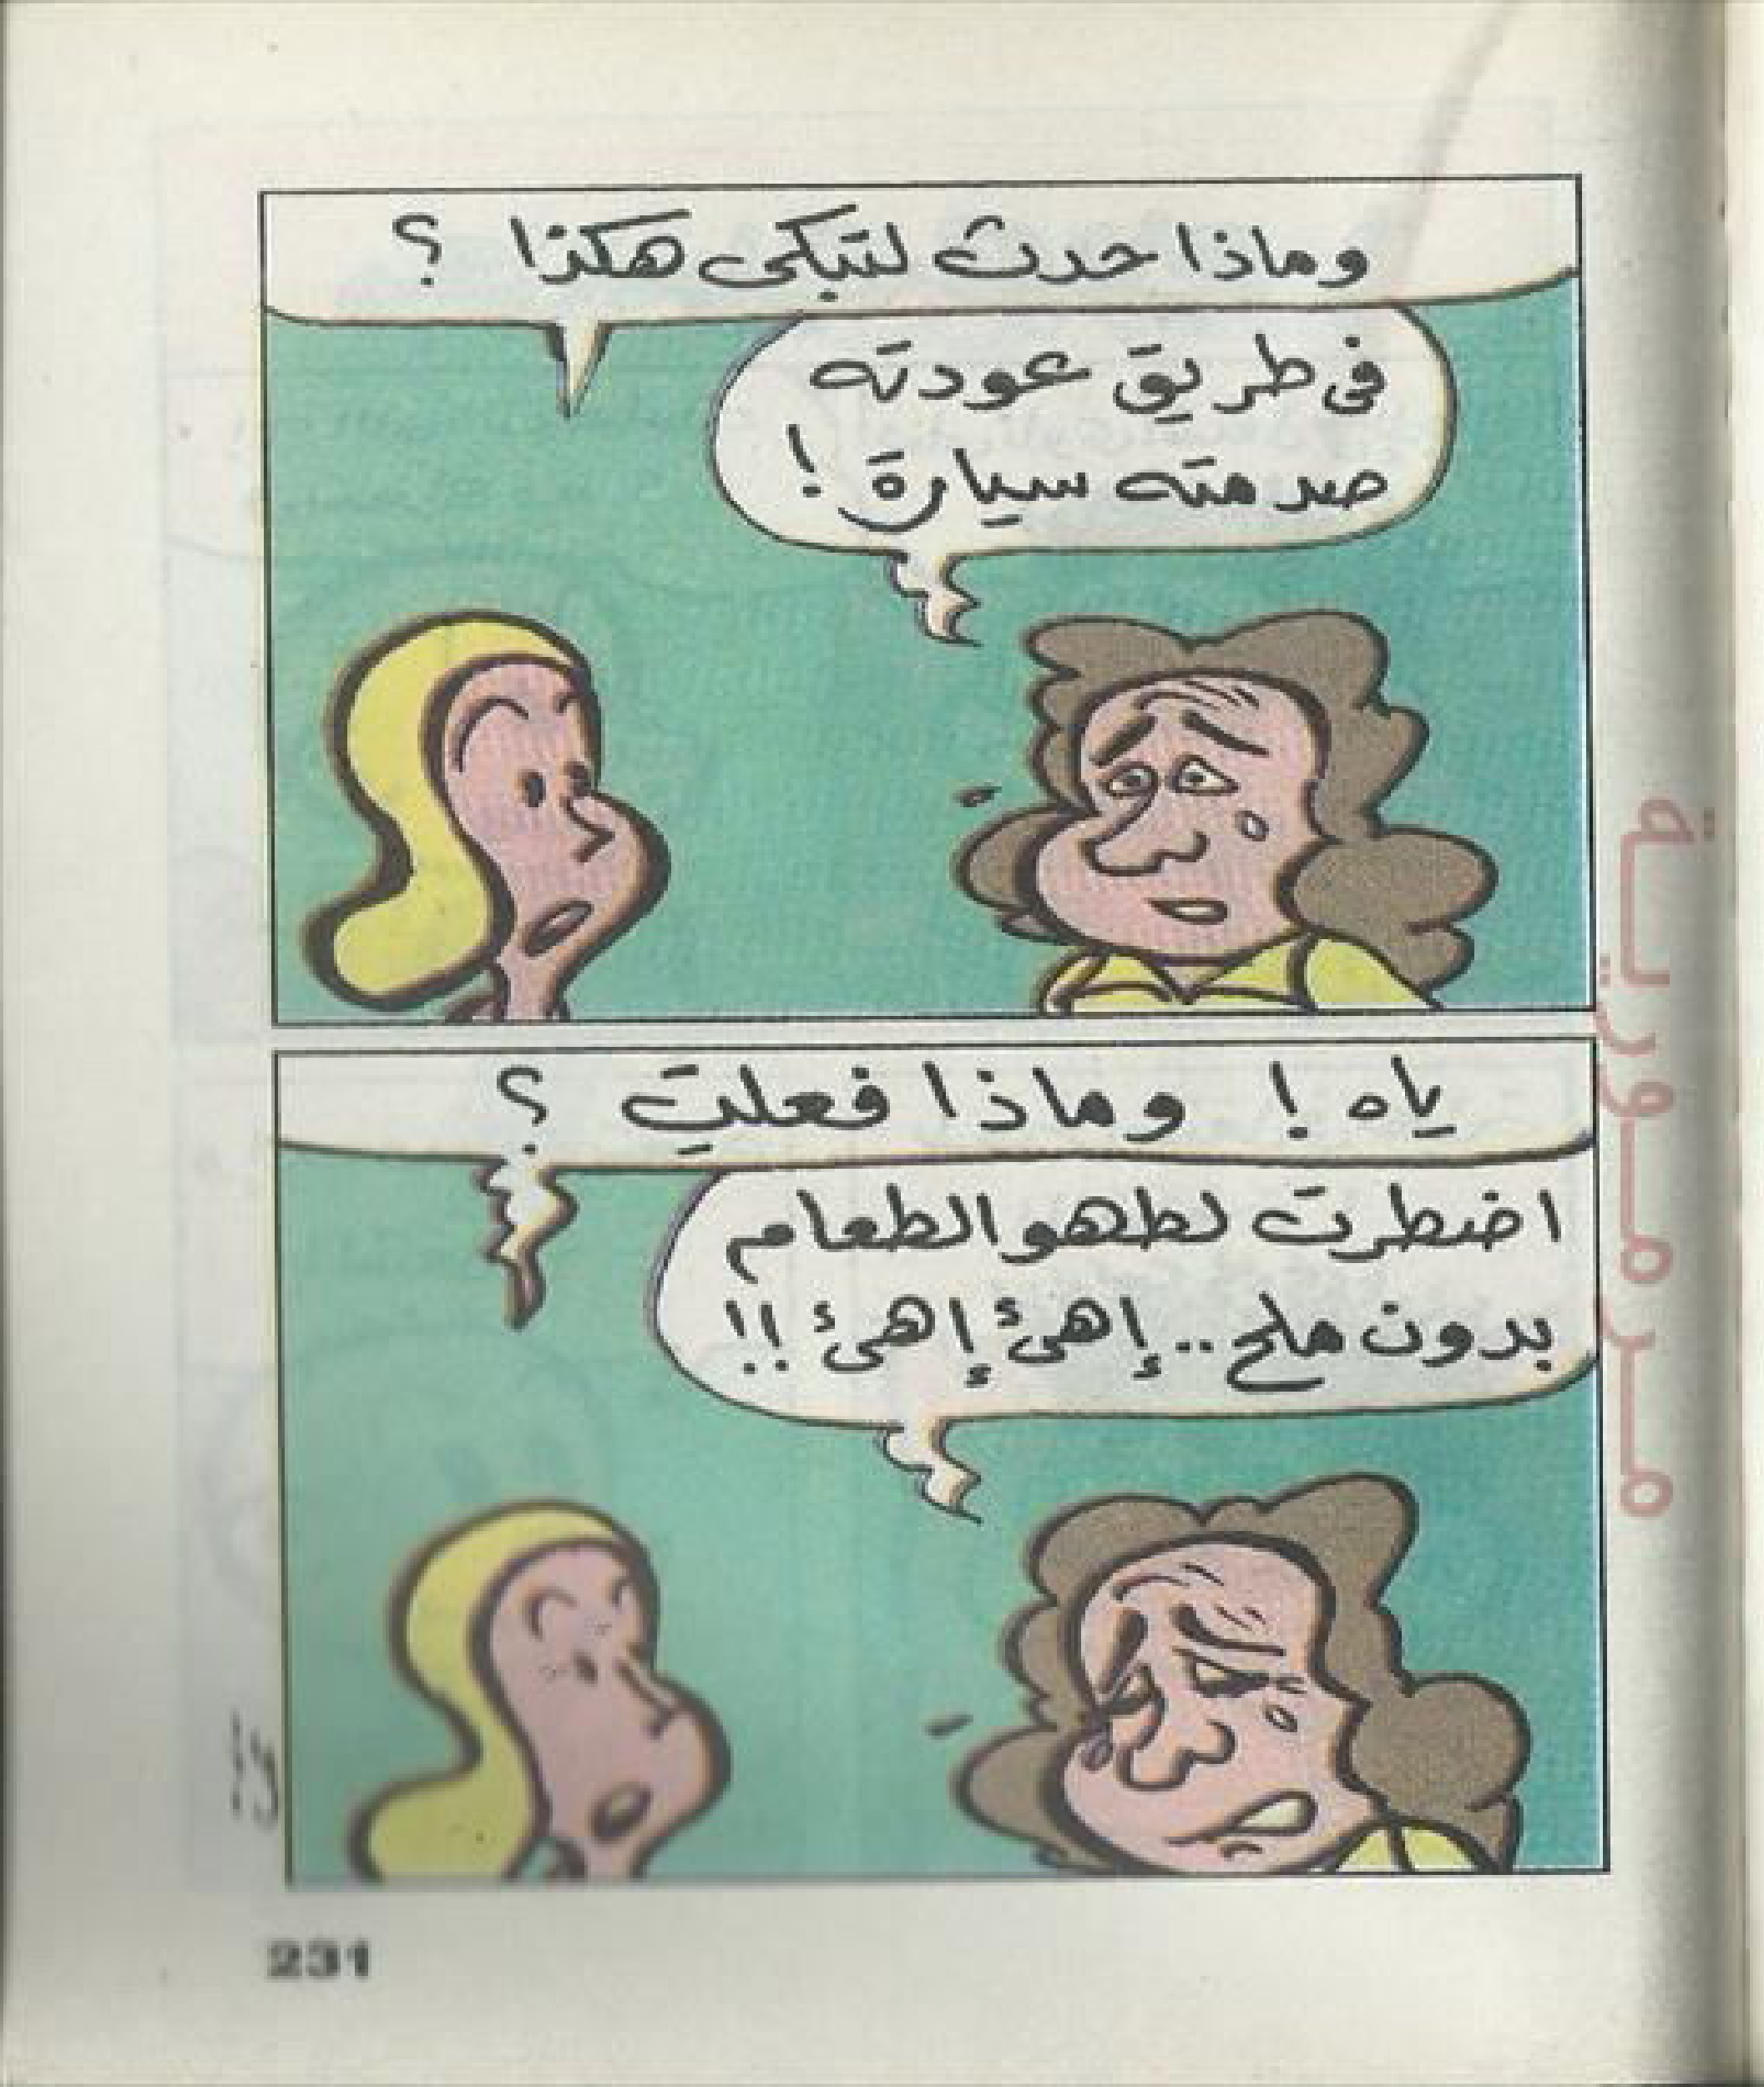 وماذا حدث لتبكى هكذا ؟
فى طريق عودته
صدمته سيارة !
ياه ! وماذا فعلتِ ؟
اضطرت لطهو الطعام
بدون ملح .. إهئ إهئ !!
231
مرمورية